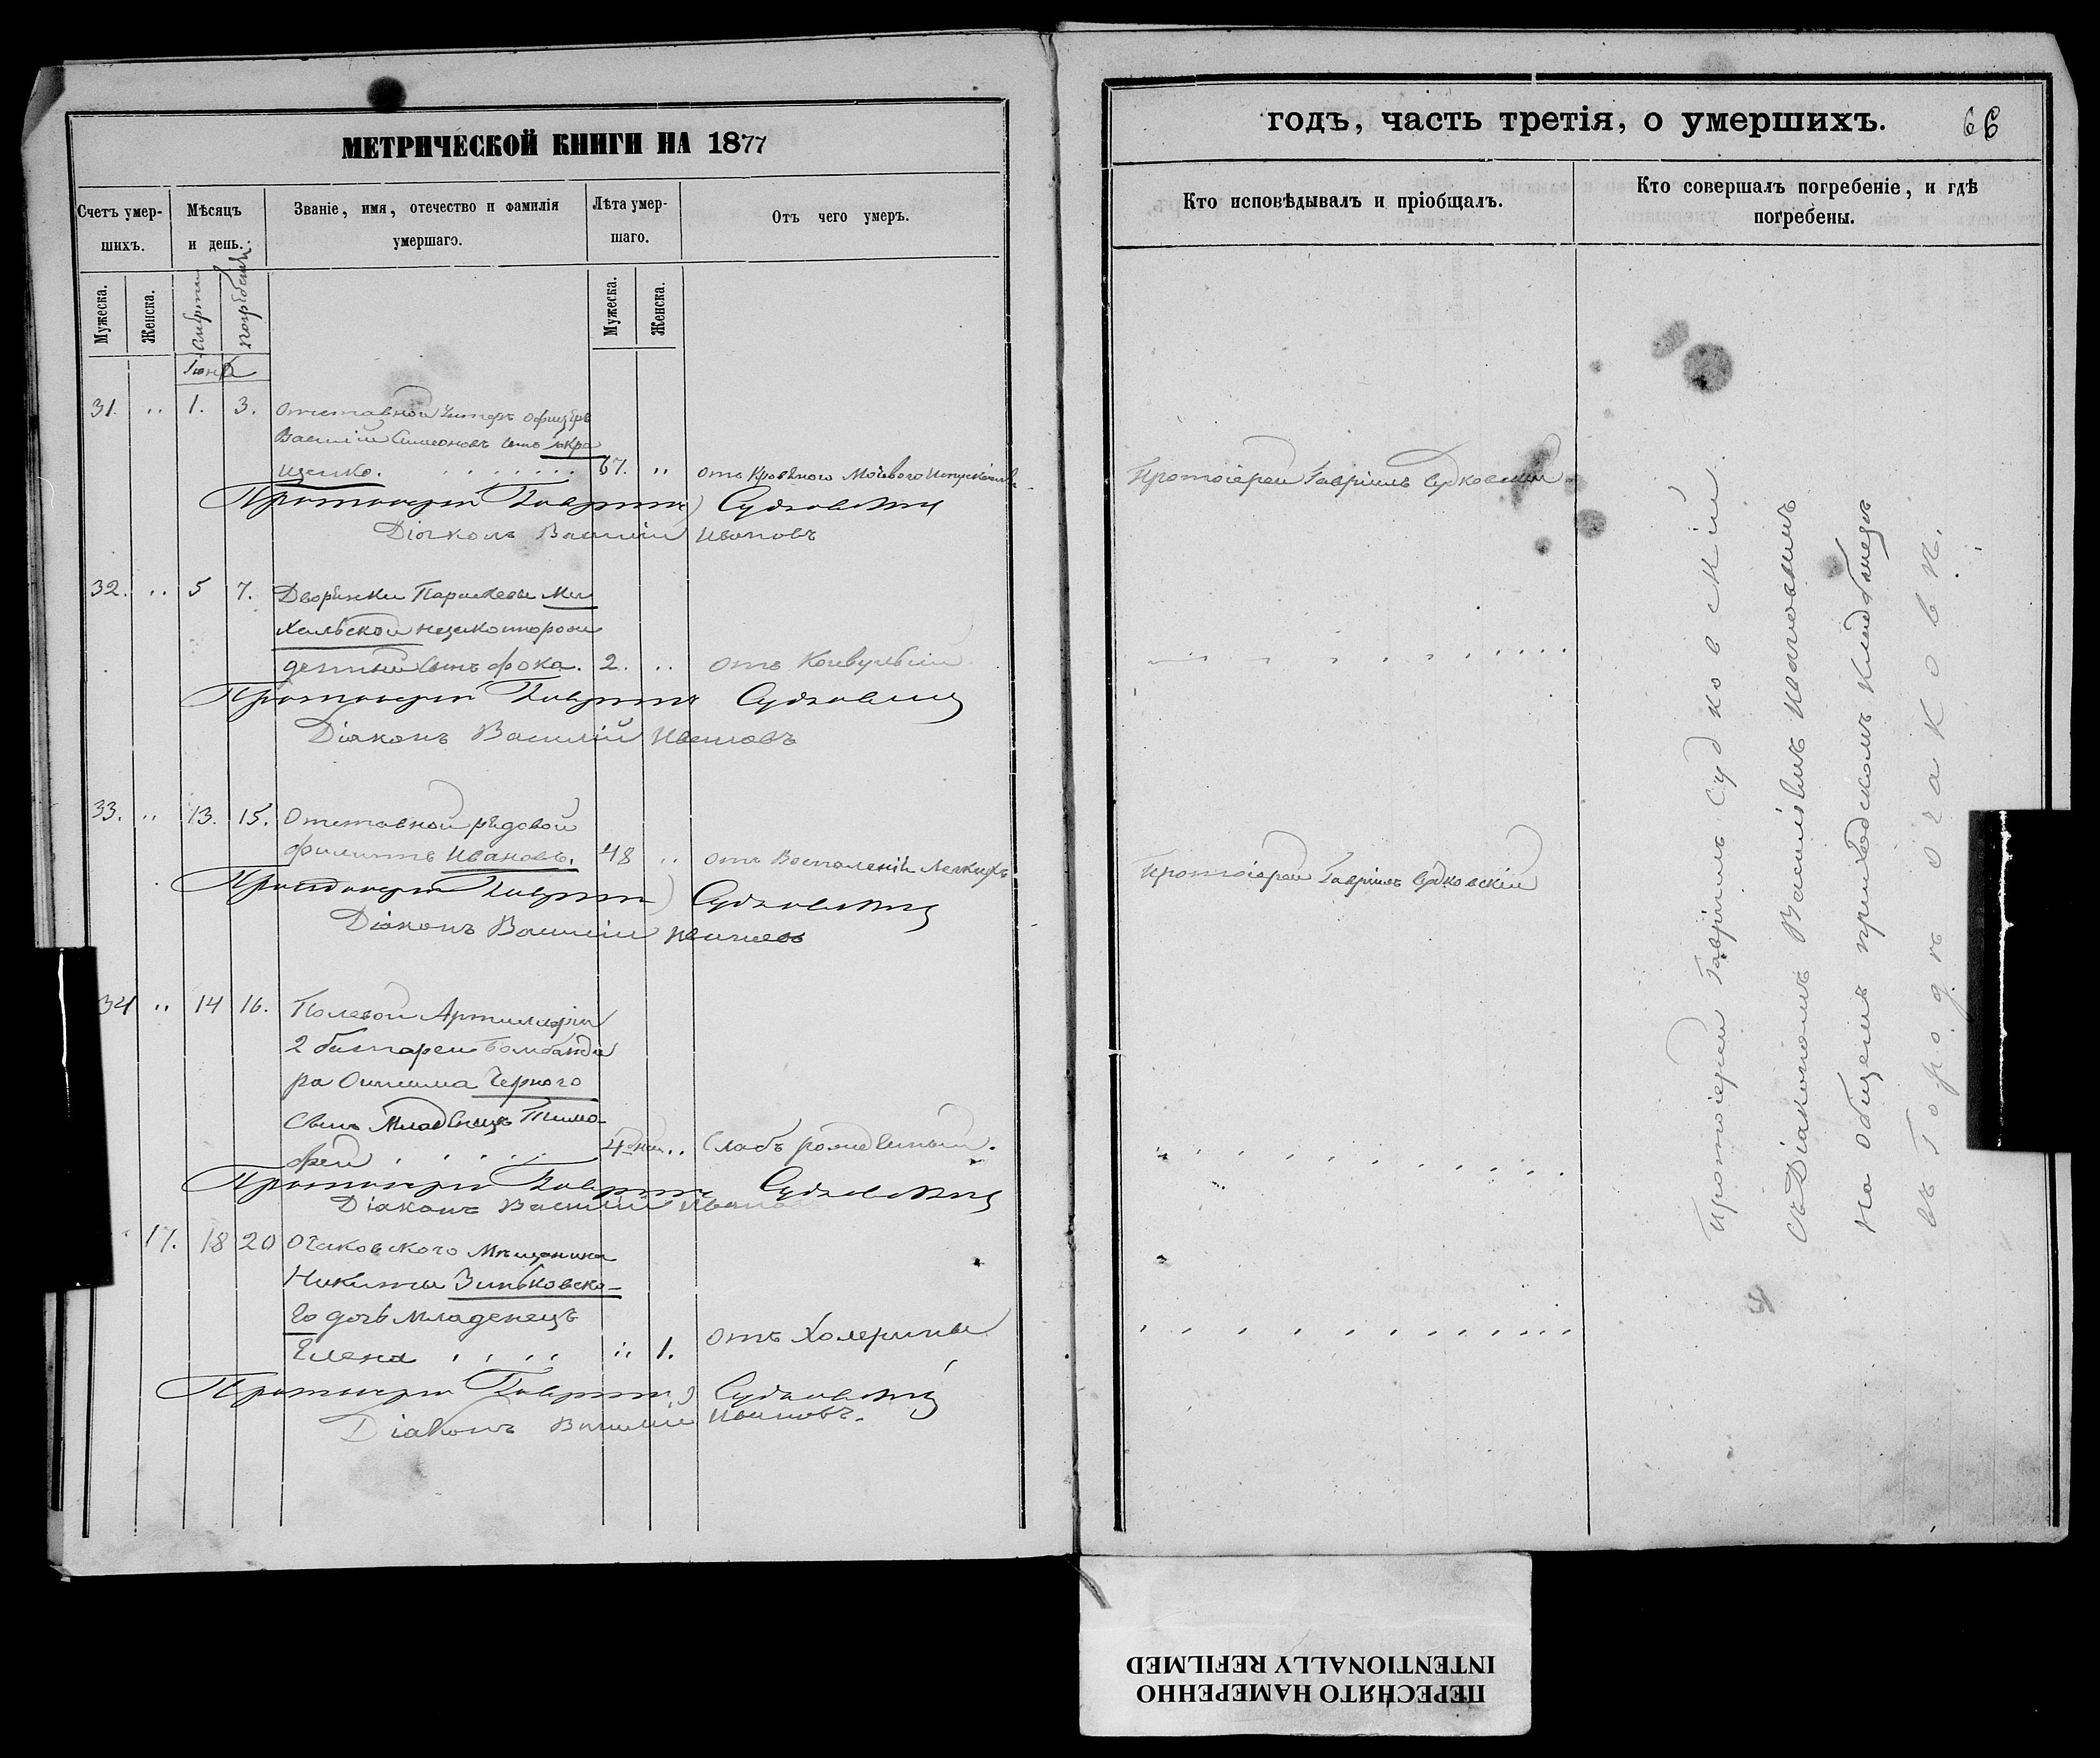 МЕТРИЧЕСКОЙ КНИГИ НА 1877
Счетъ умер-
шихъ.
Мѣсяцъ
и день.
Званіе, имя, отечество и фамилія
умершаго.
Лѣта умер-
шаго.
Отъ чего умеръ.
Мужеска.
Женска.
Смерти
погребенія
Мужеска.
Женска.
Іюня
31. „ 1. 3. Отставной Унтеръ Офицеръ
Василій Симеоновъ сынъ
щенко. 67. „ отъ Кроваваго Мочеваго
Протоіерей Гавріилъ Судковскій
Діаконъ Василій Ивановъ
32. „ 5 7. Дворянки Параскевы Ми
хальской
сынъ Фока. 2. „ отъ Конвульсій.
Протоіерей Гавріилъ Судковскій
Діаконъ Василій Ивановъ
33. „ 13. 15. Отставной рядовой
Филиппъ Ивановъ. 48 „ отъ Воспаленія Легкихъ
Протоіерей Гавріилъ Судковскій
Діаконъ Василій Ивановъ
34 „ 14 16. Полевой Артиллеріи
2 батареи Бомбанди
ра Онисима Чернаго
Сынъ Младенецъ Тимо-
фей 4 дней „ Слабъ рожденный.
Протоіерей Гавріилъ Судковскій
Діаконъ Василій Ивановъ
„ 17. 18 20 Очаковскаго Мѣщанина
Никиты Зиньковска-
го дочь младенецъ
Елена „ 1. отъ Холерины
Протоіерей Гавріилъ Судковскій
Діаконъ Василій Ивановъ.
годъ, часть третія, о умершихъ.
66
Кто исповѣдывалъ и пріобщалъ.
Кто совершалъ погребеніе, и гдѣ
погребены.
Протоіерей Гавріилъ Судковскій
Протоіерей Гавріилъ Судковскій
Протоіерей Гавріилъ Судковскій
съ Діакономъ Василіемъ Ивановымъ
на общемъ приходскомъ кладбищѣ
въ Городѣ Очаковѣ.
ПЕРЕСНЯТО НАМЕРЕННО
INTENTIONALLY REFILMED